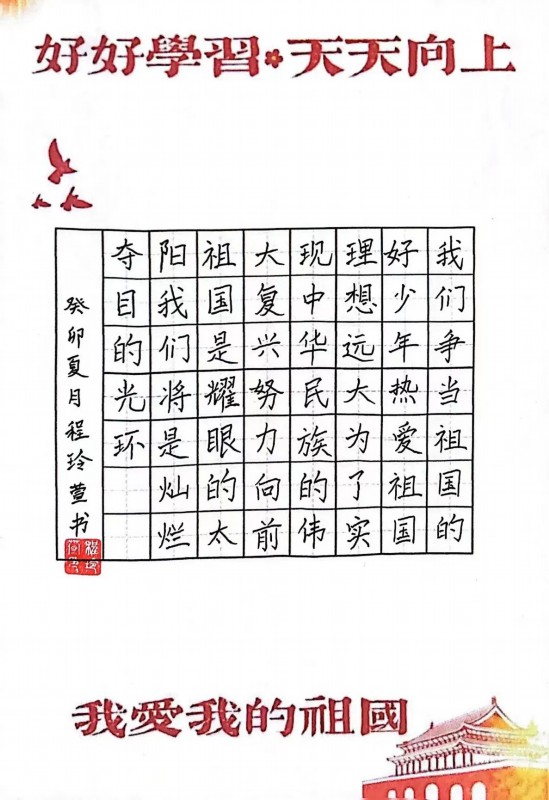 好好學習天天向上
我们争当祖国的
好少年热爱祖国
理想远大为了实
现中华民族的伟
大复兴努力向前
祖国是耀眼的太
阳我们将是灿烂
夺目的光环
癸卯夏月程玲萱书
我愛我的祖國